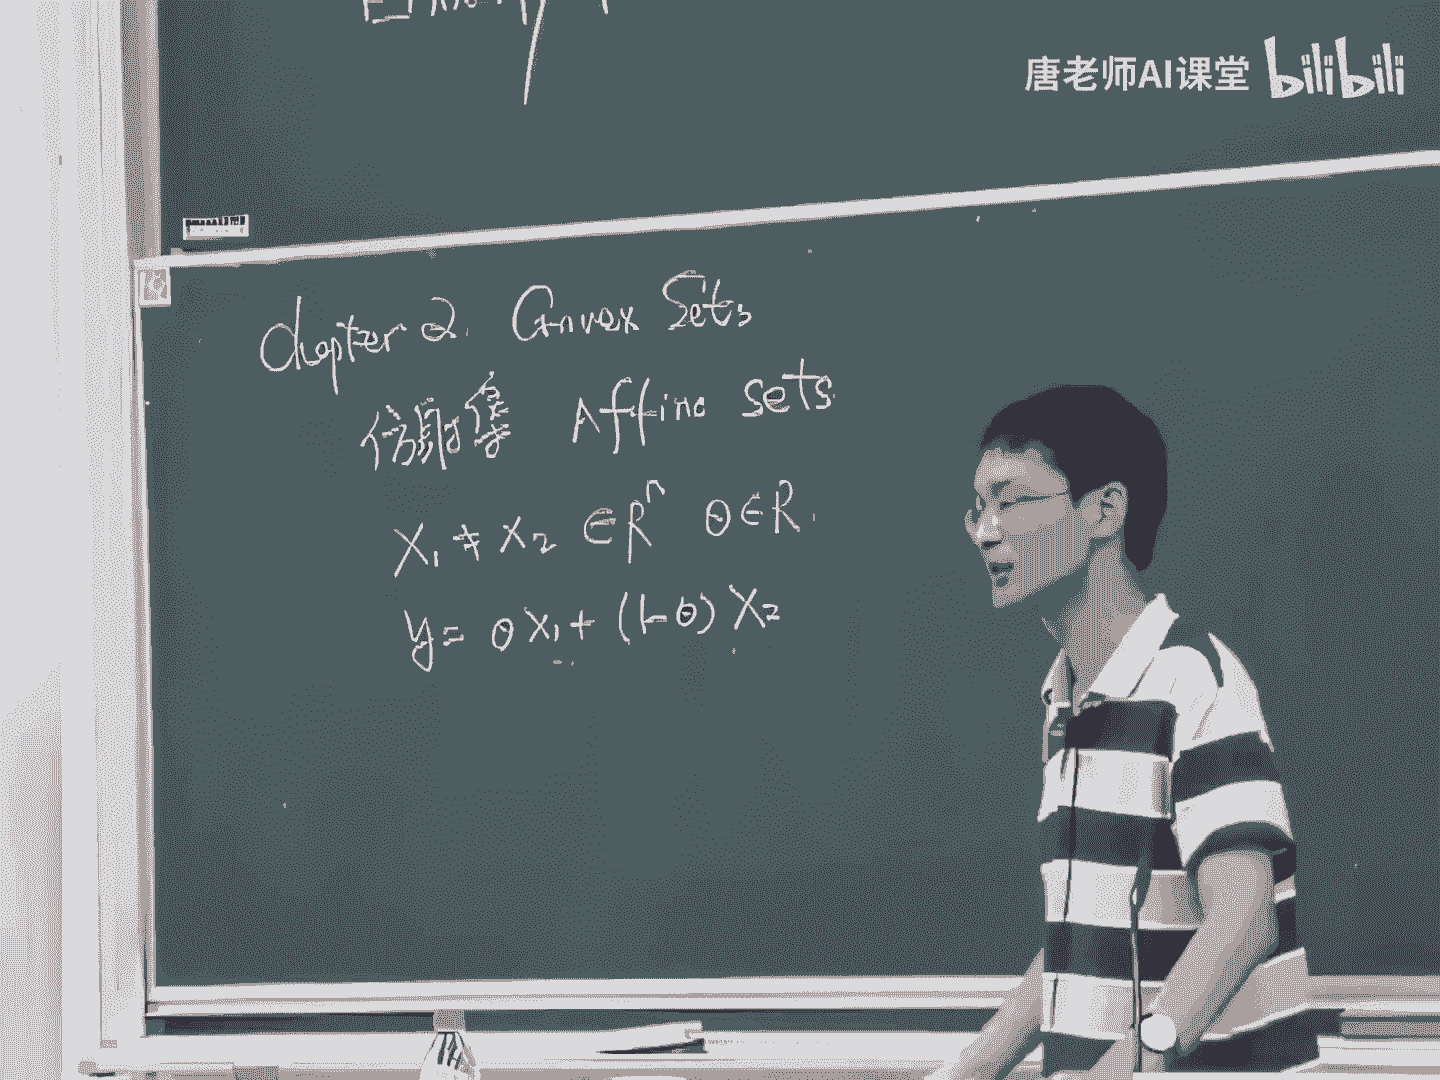 唐老师AI课堂 bilibili
Chapter 2. Convex Sets
仿射集 Affine sets
X₁ ≠ X₂ ∈ Rⁿ θ ∈ R.
y = θX₁ + (1-θ) X₂